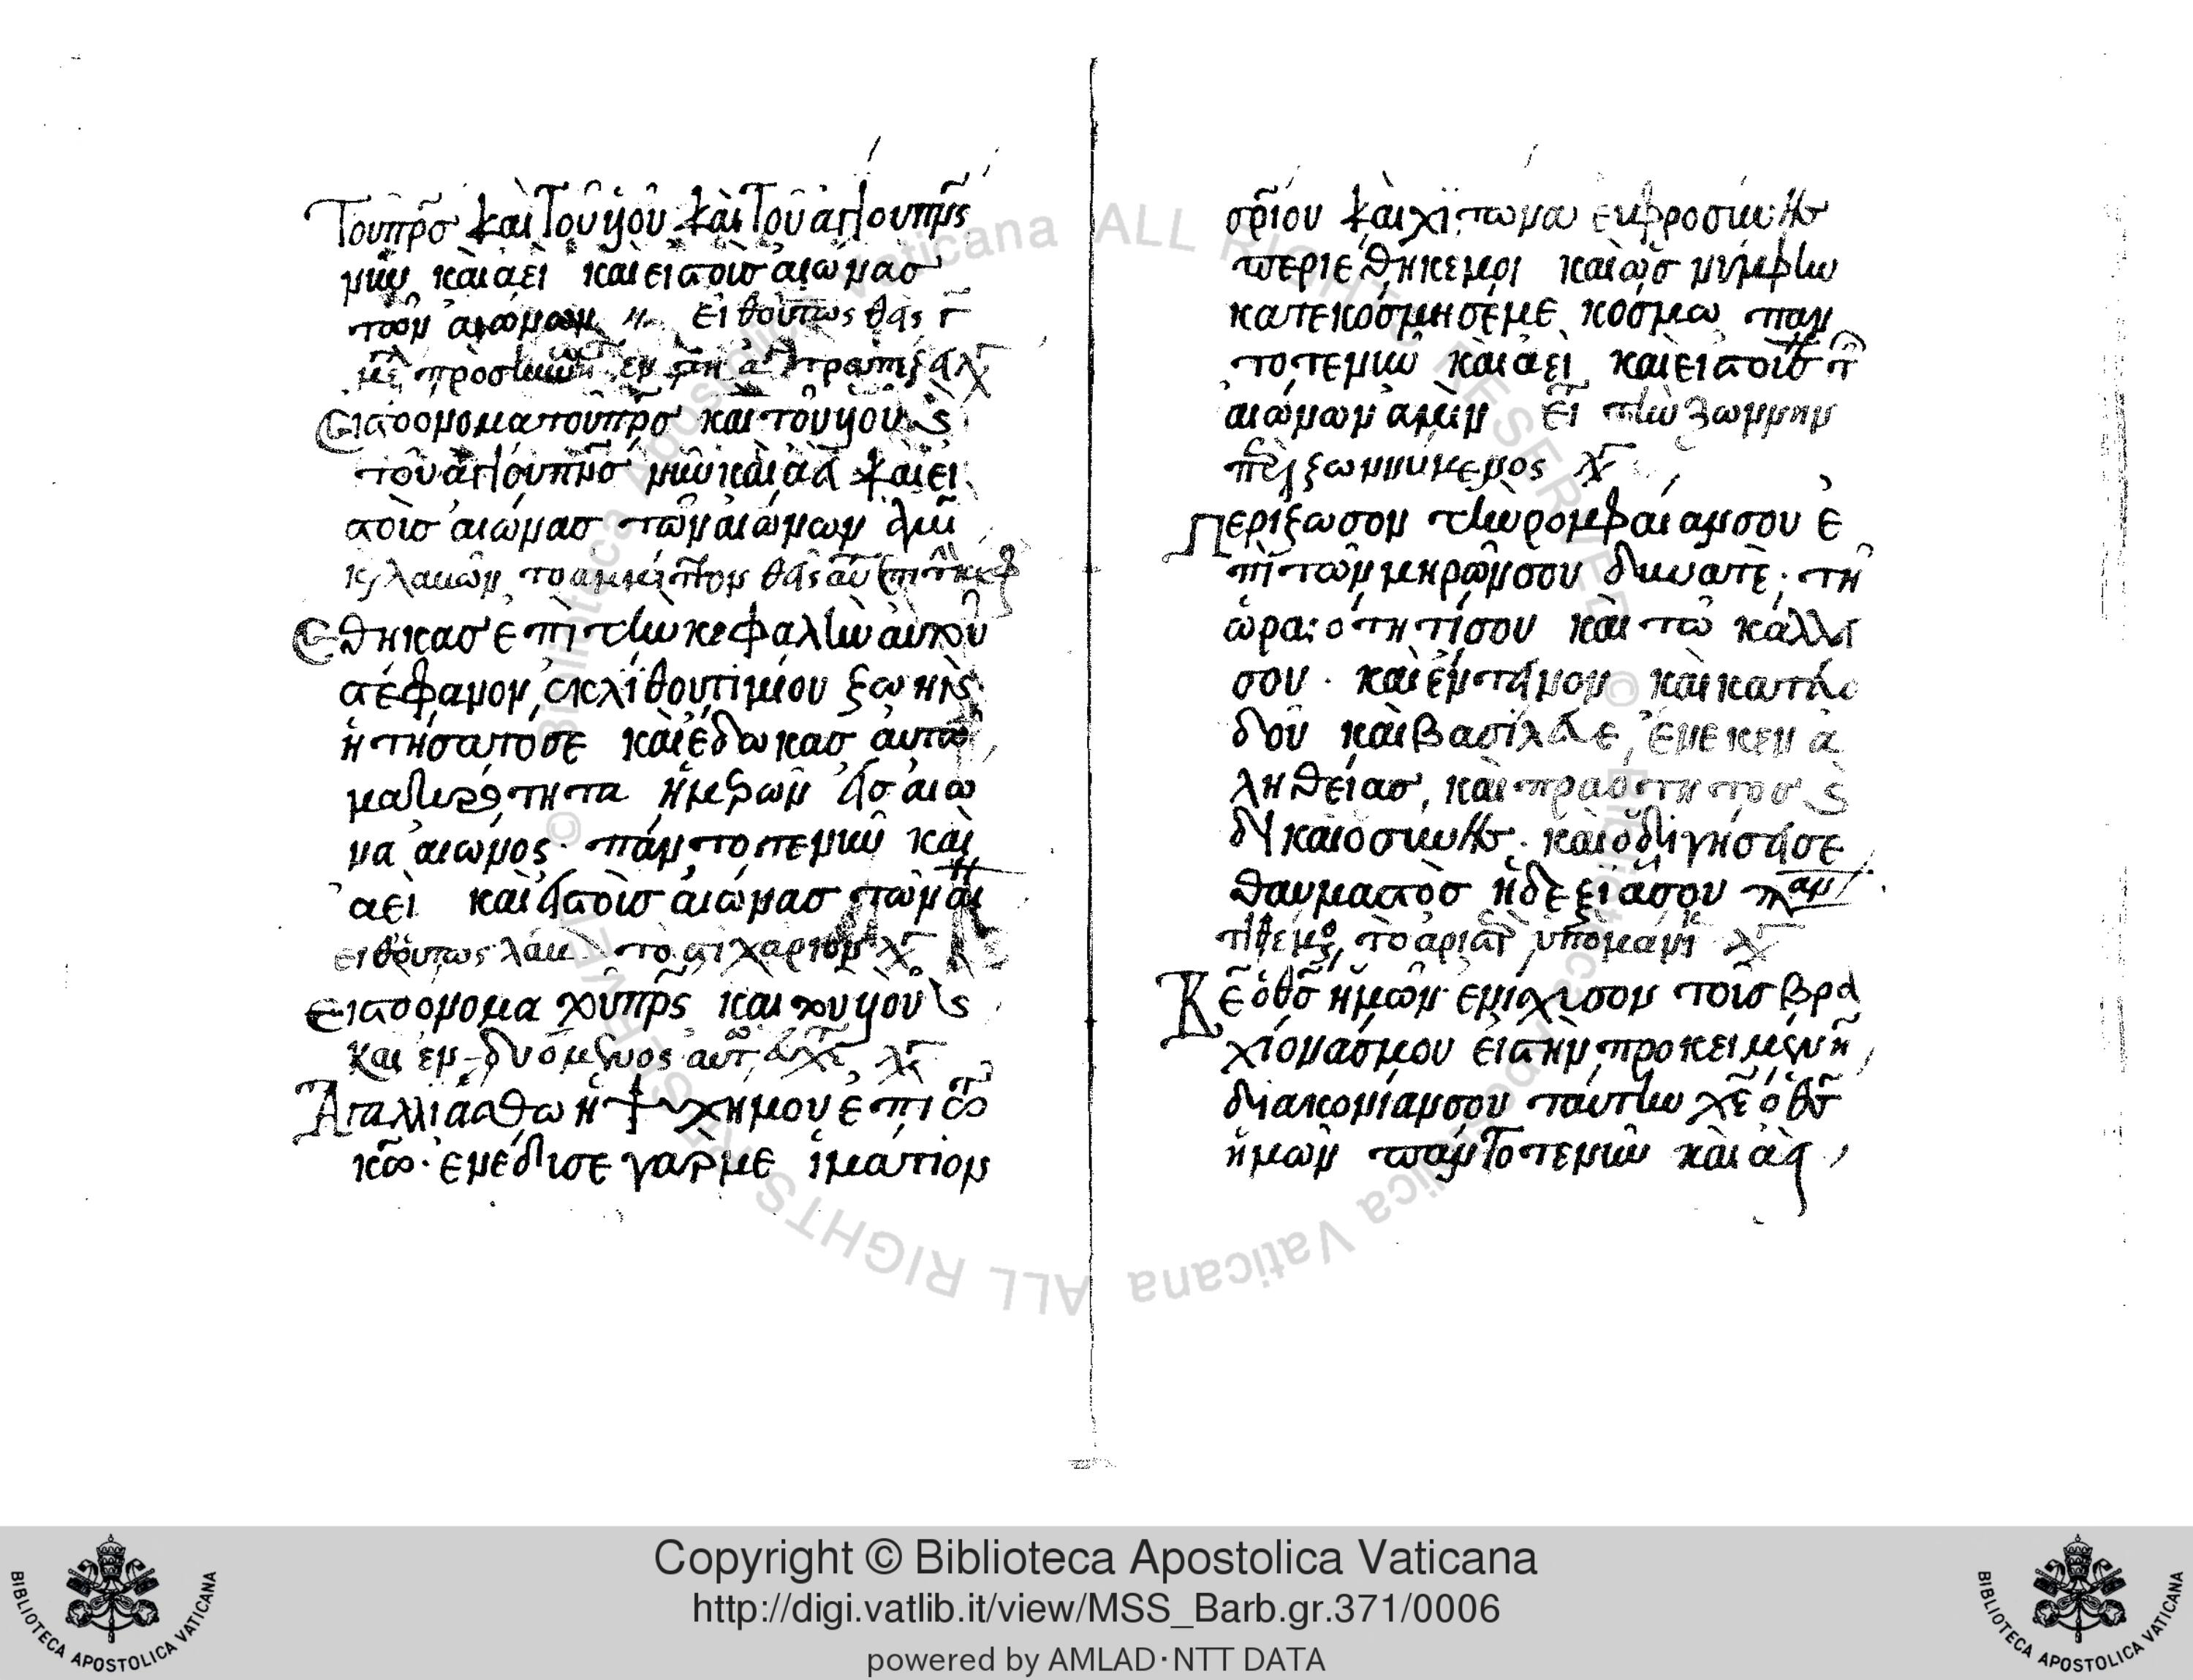 Τοῦ πρσ καὶ Τοῦ ὑοῦ καὶ Τοῦ ἁγίου πνς
νῦν καὶ ἀεὶ καὶ εἰς τοὺσ αἰῶνασ
τῶν αἰώνων εἶθ οὕτως
Εἰς τὸ ὄνομα τοῦ πρσ καὶ τοῦ ὑοῦ
τοῦ ἁγίου πνσ νῦν καὶ ἀεὶ καὶ εἰ
στοὺσ αἰῶνασ τῶν αἰώνων ἀμ
Εθηκασ ἐπὶ τὴν κεφαλὴν αὐτοῦ
στέφανον, ἐκ λίθου τιμίου ζωὴν
ἠτήσατό σε καὶ ἔδωκασ αὐτῷ
μακρότητα ἡμερῶν εἰσ αἰῶ
να αἰῶνος· πάντοτε νῦν καὶ
ἀεὶ καὶ εἰς τοὺσ αἰῶνασ τῶν αἰ
εἶθ οὕτως λαμ τὸ στιχάριον λγ
Εἰς τὸ ὄνομα τοῦ πρς καὶ τοῦ ὑοῦ
καὶ ἐνδυόμενος αὐτ λγ
Ἀγαλλιάσθω ἡ ψυχή μου ἐπὶ τῶ
κω· ἐνέδυσε γάρ με ἱμάτιον
σρίου καὶ χιτῶνα εὐφροσύνησ
περιέθηκέ μοι καὶ ὡσ νύμφην
κατεκόσμησέ με κόσμω παν
τοτε νῦν καὶ ἀεὶ καὶ εἰς τοὺσ
αἰώνων ἀμὴν τὴν ζώνην
περιζωννύμενος λγ
Περίζωσον τὴν ρομφαίαν σου ἐ
πὶ τὸν μηρόν σου δυνατέ· τῆ
ὡραιότητί σου καὶ τῶ κάλλει
σου· καὶ ἔντεινον καὶ κατευο
δοῦ καὶ βασίλευε, ἕνεκεν ἀ
ληθείασ, καὶ πραότητοσ
δικαιοσύνησ· καὶ ὁδηγήσει σε
θαυμαστῶσ ἡ δεξιά σου παν
τιθέμενος τὸ ἀριστ ὑπομάνι λγ
Κε ὁ θσ ἡμῶν ἐνίσχυσον τοὺσ βρα
χίονάσ μου εἰς τὴν προκειμένην
διακονίαν σου ταύτην χε ὁ θσ
ἡμῶν πάντοτε νῦν καὶ ἀεὶ
Copyright © Biblioteca Apostolica Vaticana
http://digi.vatlib.it/view/MSS_Barb.gr.371/0006
powered by AMLAD·NTT DATA
BIBLIOTECA APOSTOLICA VATICANA
BIBLIOTECA APOSTOLICA VATICANA
© Biblioteca Apostolica Vaticana ALL RIGHTS RESERVED
© Biblioteca Apostolica Vaticana ALL RIGHTS